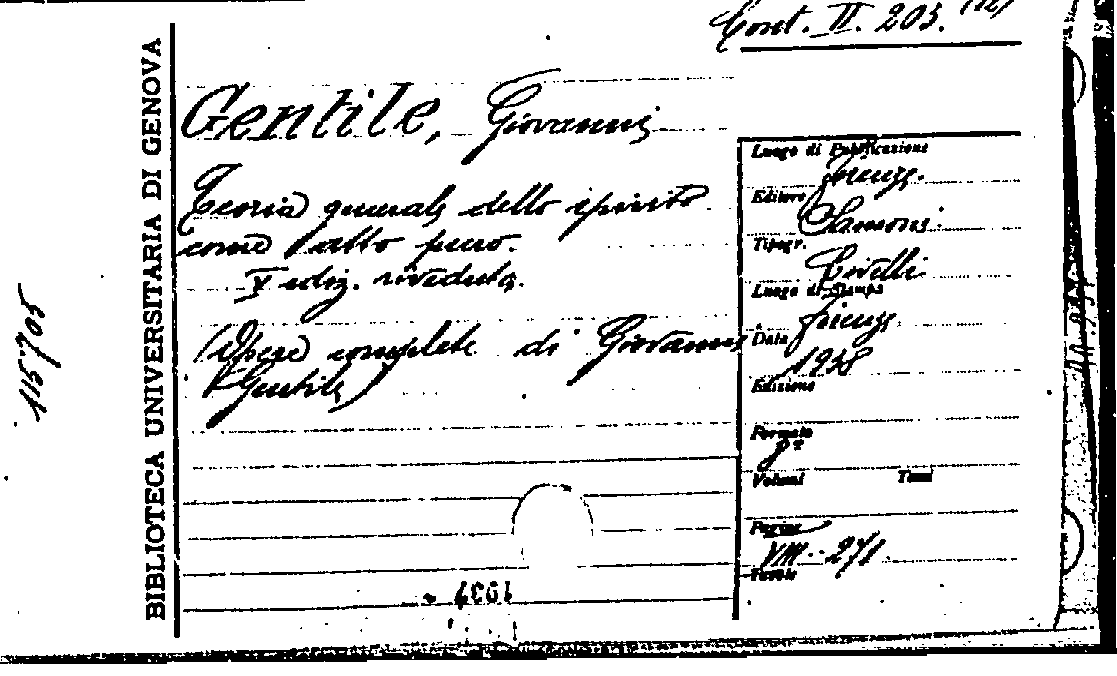 Cont. II. 203. (12)
BIBLIOTECA UNIVERSITARIA DI GENOVA
115705
Gentile, Giovanni
Teoria generale dello spirito
come atto puro.
V ediz. riveduta.
(Opere complete di Giovanni
Gentile)
Luogo di Pubblicazione
Firenze
Editore
Sansoni
Tipogr.
Civelli
Luogo di Stampa
Firenze
Data
1938
Edizione
Formato
8°
Volumi Tomi
Pagine
VIII - 271
Tavole